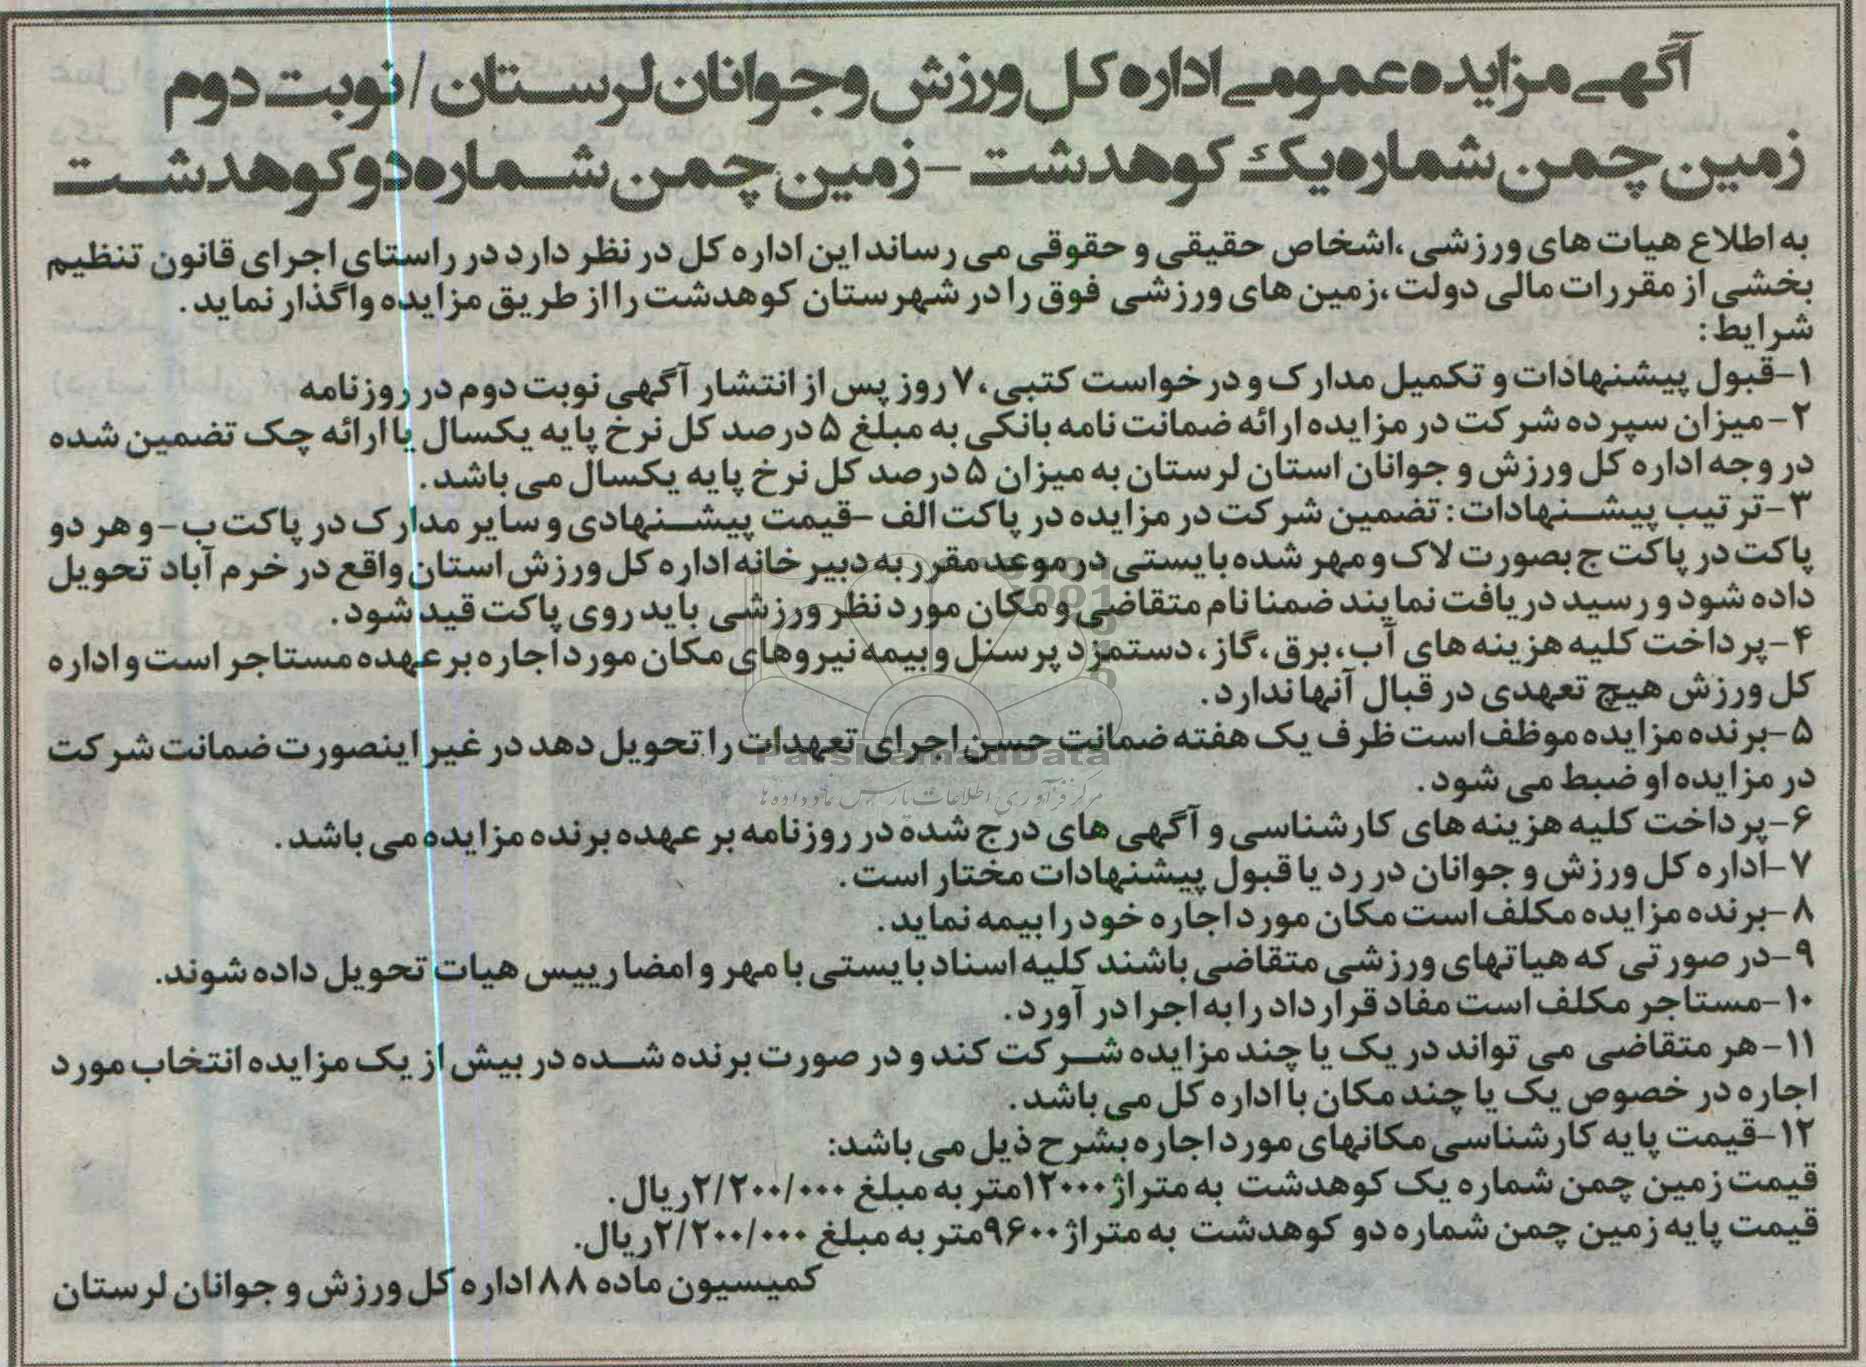 آگهی مزایده عمومی اداره کل ورزش و جوانان لرستان / نوبت دوم
زمین چمن شماره یک کوهدشت - زمین چمن شماره دو کوهدشت
به اطلاع هیات های ورزشی ،اشخاص حقیقی و حقوقی می رساند این اداره کل در نظر دارد در راستای اجرای قانون تنظیم
بخشی از مقررات مالی دولت ،زمین های ورزشی فوق را در شهرستان کوهدشت را از طریق مزایده واگذار نماید .
شرایط :
۱-قبول پیشنهادات و تکمیل مدارک و درخواست کتبی ، ۷ روز پس از انتشار آگهی نوبت دوم در روزنامه
۲-میزان سپرده شرکت در مزایده ارائه ضمانت نامه بانکی به مبلغ ۵ درصد کل نرخ پایه یکسال یا ارائه چک تضمین شده
در وجه اداره کل ورزش و جوانان استان لرستان به میزان ۵ درصد کل نرخ پایه یکسال می باشد .
۳-ترتیب پیشنهادات : تضمین شرکت در مزایده در پاکت الف -قیمت پیشنهادی و سایر مدارک در پاکت ب - و هر دو
پاکت در پاکت ج بصورت لاک و مهر شده بایستی در موعد مقرر به دبیرخانه اداره کل ورزش استان واقع در خرم آباد تحویل
داده شود و رسید دریافت نمایند ضمنا نام متقاضی و مکان مورد نظر ورزشی باید روی پاکت قید شود .
۴-پرداخت کلیه هزینه های آب ، برق ، گاز ، دستمزد پرسنل و بیمه نیروهای مکان مورد اجاره بر عهده مستاجر است و اداره
کل ورزش هیچ تعهدی در قبال آنها ندارد .
۵-برنده مزایده موظف است ظرف یک هفته ضمانت حسن اجرای تعهدات را تحویل دهد در غیر اینصورت ضمانت شرکت
در مزایده او ضبط می شود .
۶-پرداخت کلیه هزینه های کارشناسی و آگهی های درج شده در روزنامه بر عهده برنده مزایده می باشد .
۷-اداره کل ورزش و جوانان در رد یا قبول پیشنهادات مختار است .
۸-برنده مزایده مکلف است مکان مورد اجاره خود را بیمه نماید .
۹-در صورتی که هیاتهای ورزشی متقاضی باشند کلیه اسناد بایستی با مهر و امضا رییس هیات تحویل داده شوند.
۱۰-مستاجر مکلف است مفاد قرارداد را به اجرا در آورد .
۱۱-هر متقاضی می تواند در یک یا چند مزایده شرکت کند و در صورت برنده شده در بیش از یک مزایده انتخاب مورد
اجاره در خصوص یک یا چند مکان با اداره کل می باشد .
۱۲-قیمت پایه کارشناسی مکانهای مورد اجاره بشرح ذیل می باشد:
قیمت زمین چمن شماره یک کوهدشت به متراژ ۱۲۰۰۰متر به مبلغ ۲/۲۰۰/۰۰۰ریال .
قیمت پایه زمین چمن شماره دو کوهدشت به متراژ ۹۶۰۰متر به مبلغ ۲/۲۰۰/۰۰۰ریال.
کمیسیون ماده ۸۸ اداره کل ورزش و جوانان لرستان
ParsNamadData
مرکز فرآوری اطلاعات پارس نماد داده ها